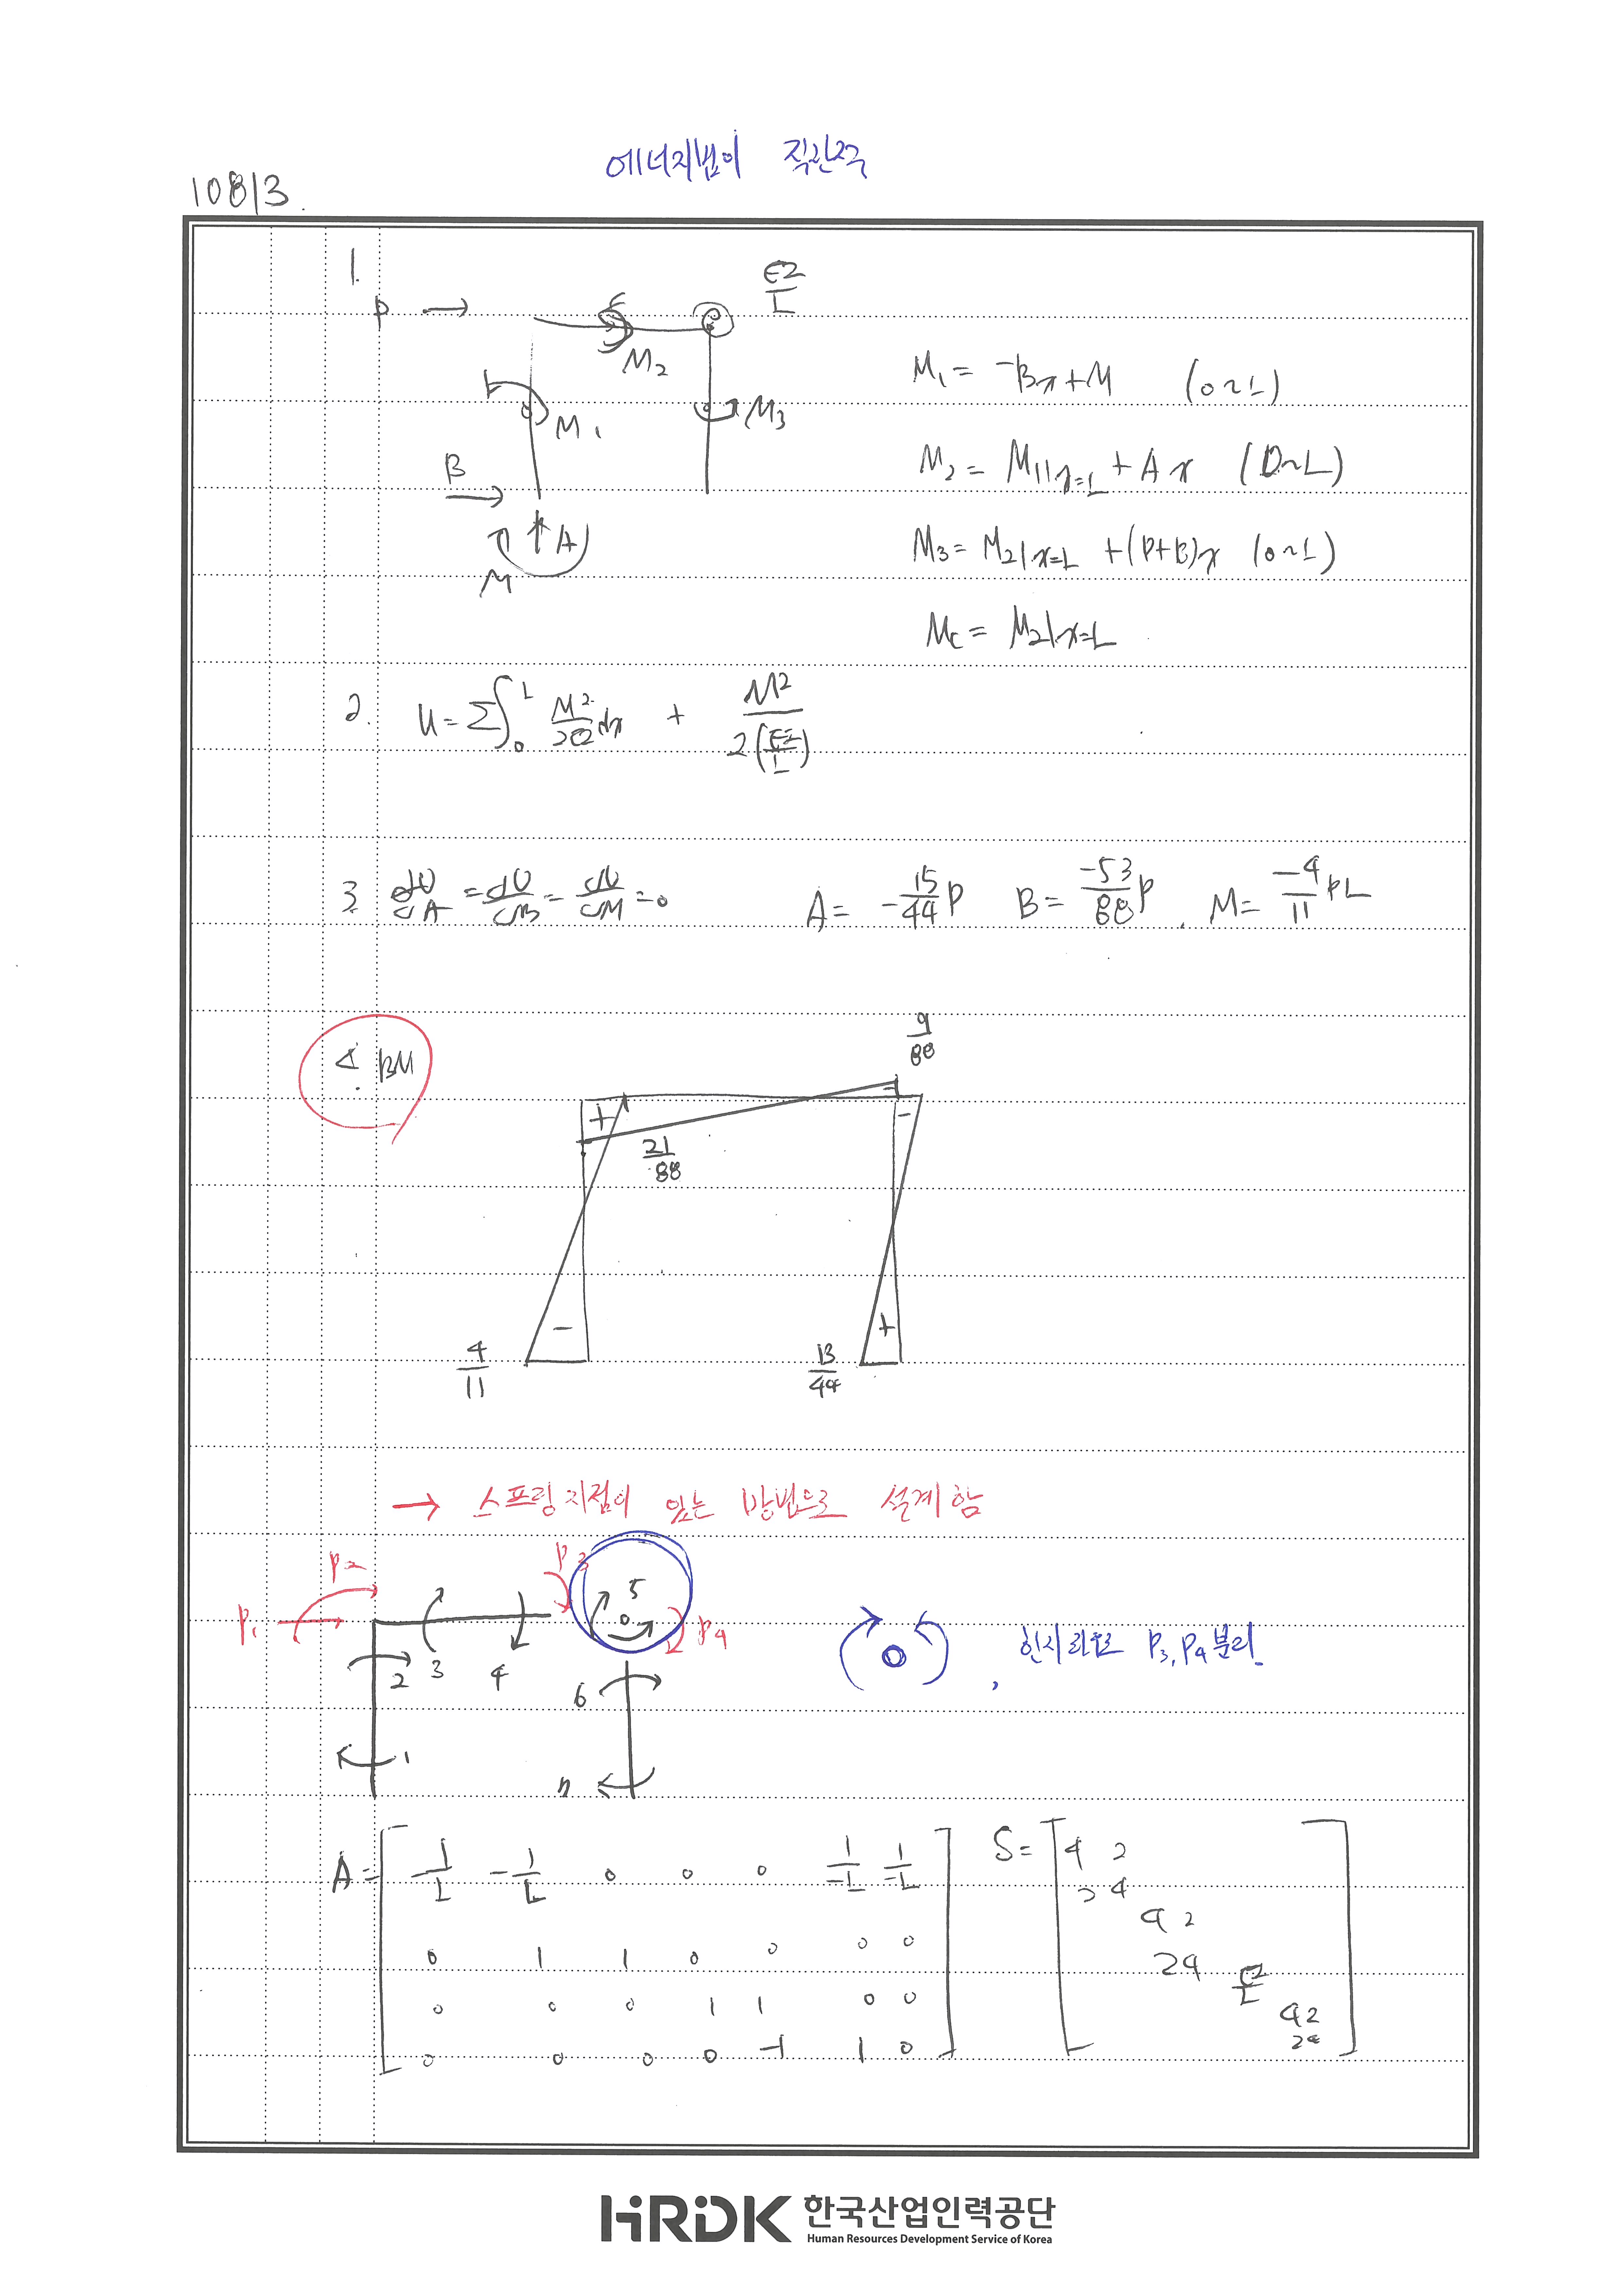 에너지법이 직관적
108/3.
1.
P →
EI/L
M2
M1
M3
B
A
M
M1 = -Bx+M (0~L)
M2 = M1|x=L + Ax (0~L)
M3 = M2|x=L + (P+B)x (0~L)
Mc = M2|x=L
2. U = Σ∫0^L M²/2EI dx + M²/2(EI/L)
3. dU/dA = dU/dB = dU/dM = 0 A = -15/44 P B = -53/88 P, M = -4/11 PL
4. BM
9/88
+ - -
21/88
- +
4/11 13/44
→ 스프링지점이 있는 방법으로 설계함
P1 P2 P3 P4
1 2 3 4 5 6 7
힌지이므로 P3, P4 분리.
A = [ -1/L -1/L 0 0 0 1/-L 1/-L
0 1 1 0 0 0 0
0 0 0 1 1 0 0
0 0 0 0 -1 1 0 ]
S = [ 4 2
2 4
4 2
2 4
EI/L
4 2
2 4 ]
HRDK 한국산업인력공단
Human Resources Development Service of Korea